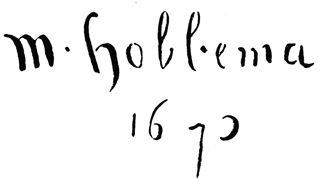 m. hobbema
1670